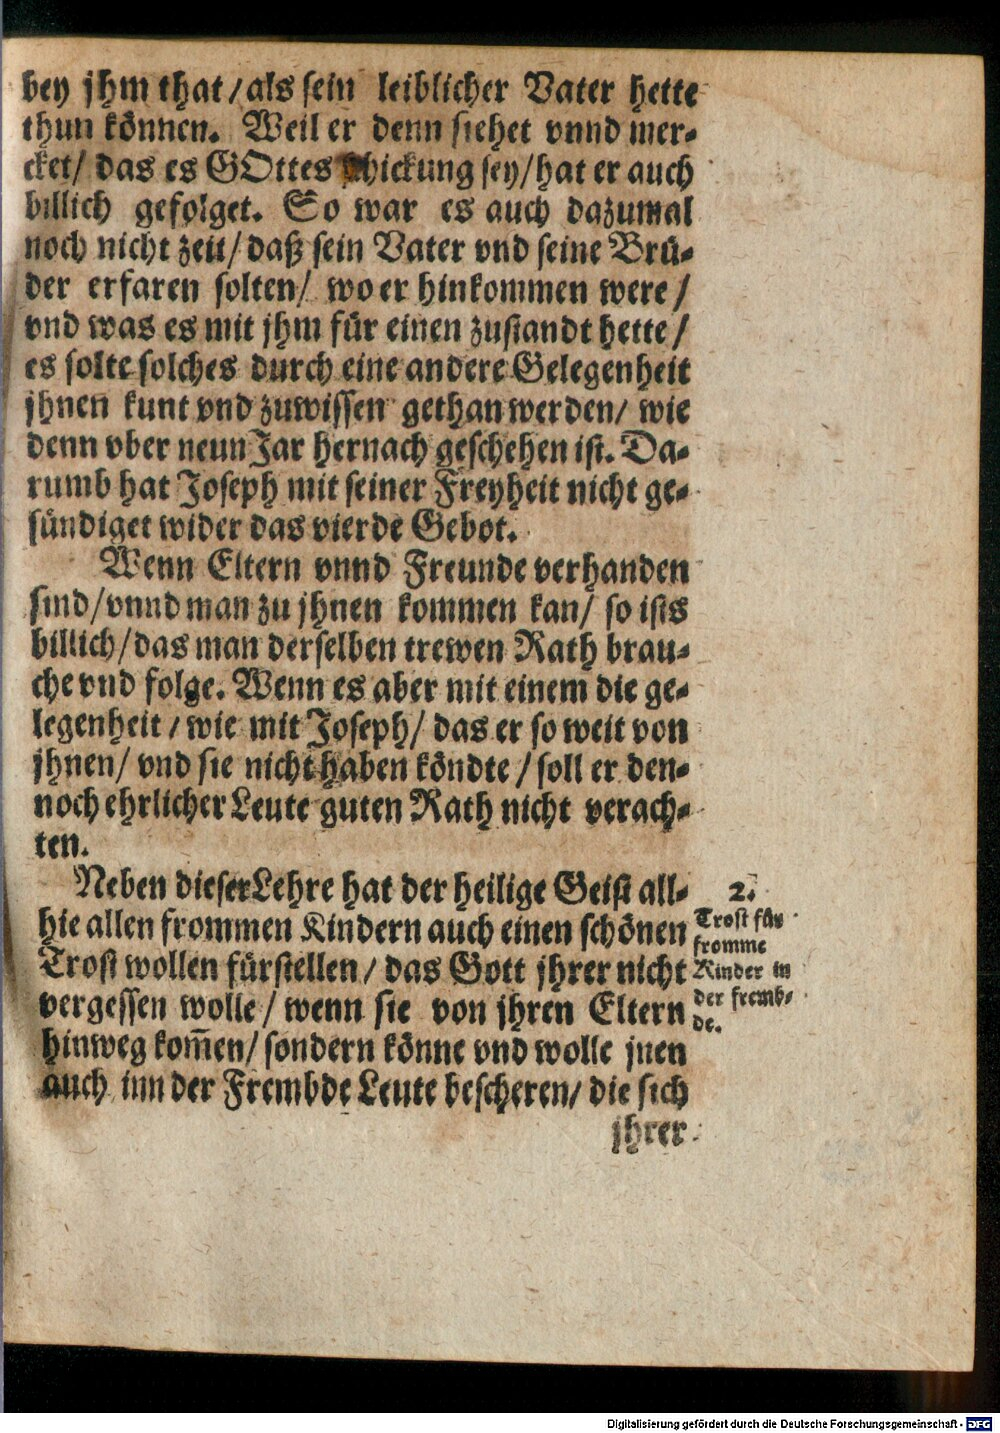 bey jhm that / als sein leiblicher Vater hette
thun können. Weil er denn siehet vnnd mer-
cket / das es GOttes schickung sey / hat er auch
billich gefolget. So war es auch dazumal
noch nicht zeit / daß sein Vater vnd seine Brü-
der erfaren solten / wo er hinkommen were /
vnd was es mit jhm für einen zustandt hette /
es solte solches durch eine andere Gelegenheit
jhnen kunt vnd zuwissen gethan werden / wie
denn vber neun Jar hernach geschehen ist. Da-
rumb hat Joseph mit seiner Freyheit nicht ge-
sündiget wider das vierde Gebot.
Wenn Eltern vnnd Freunde verhanden
sind / vnnd man zu jhnen kommen kan / so ists
billich / das man derselben trewen Rath brau-
che vnd folge. Wenn es aber mit einem die ge-
legenheit / wie mit Joseph / das er so weit von
jhnen / vnd sie nicht haben köndte / soll er den-
noch ehrlicher Leute guten Rath nicht verach-
ten.
Neben dieser Lehre hat der heilige Geist all-
hie allen frommen Kindern auch einen schönen
Trost wollen fürstellen / das Gott jhrer nicht
vergessen wolle / wenn sie von jhren Eltern
hinweg kom̃en / sondern könne vnd wolle jnen
auch inn der Frembde Leute bescheren / die sich
jhrer
2.
Trost für
fromme
Kinder in
der fremb-
de.
Digitalisierung gefördert durch die Deutsche Forschungsgemeinschaft - DFG